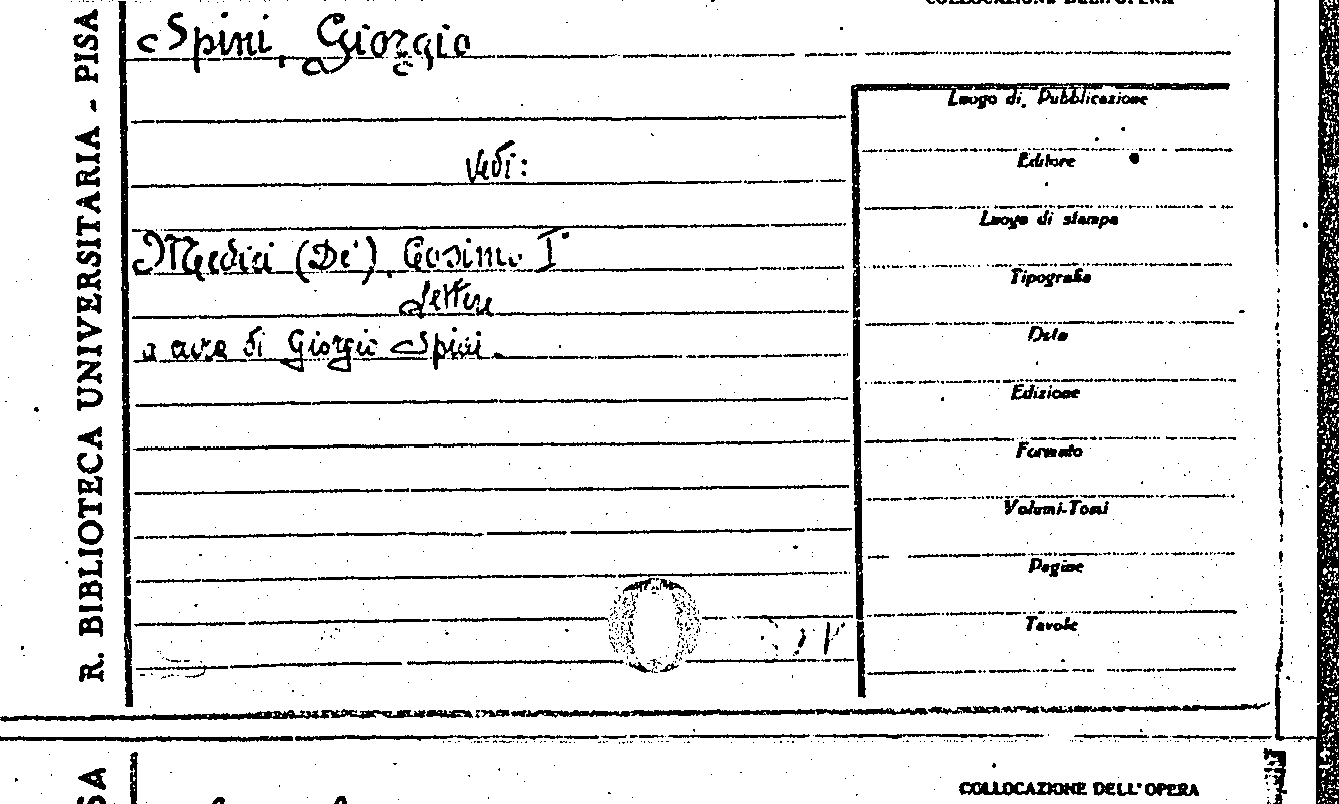 COLLOCAZIONE DELL'OPERA
R. BIBLIOTECA UNIVERSITARIA - PISA
Spini, Giorgio
Luogo di Pubblicazione
Vedi:
Editore
Luogo di stampa
Medici (De'), Cosimo I°
Tipografia
Lettere
Data
a cura di Giorgio Spini.
Edizione
Formato
Volumi-Tomi
Pagine
Tavole
COLLOCAZIONE DELL'OPERA